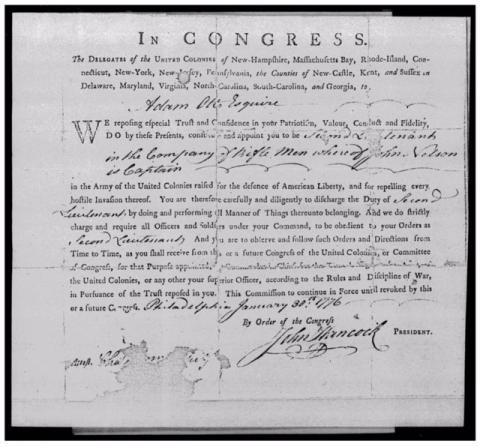 IN CONGRESS.
The DELEGATES of the UNITED COLONIES of New-Hampshire, Massachusetts Bay, Rhode-Island, Con-
necticut, New-York, New-Jersey, Pennsylvania, the Counties of New-Castle, Kent, and Sussex in
Delaware, Maryland, Virginia, North-Carolina, South-Carolina, and Georgia, to
Adam Esquire
WE reposing especial Trust and Confidence in your Patriotism, Valour, Conduct and Fidelity,
DO by these Presents, constitute and appoint you to be Second Lieutenant
in the Company of Rifle Men whereof John Nelson
is Captain
in the Army of the United Colonies raised for the defence of American Liberty, and for repelling every
hostile Invasion thereof. You are therefore carefully and diligently to discharge the Duty of Second
Lieutenant by doing and performing all Manner of Things thereunto belonging. And we do strictly
charge and require all Officers and Soldiers under your Command, to be obedient to your Orders as
Second Lieutenant And you are to observe and follow such Orders and Directions from
Time to Time, as you shall receive from this or a future Congress of the United Colonies, or Committee
of Congress, for that Purpose appointed,
the United Colonies, or any other your superior Officer, according to the Rules and Discipline of War,
in Pursuance of the Trust reposed in you. This Commission to continue in Force until revoked by this
or a future Congress. Philadelphia January 30th 1776
By Order of the Congress
John Hancock PRESIDENT.
Attest. Cha